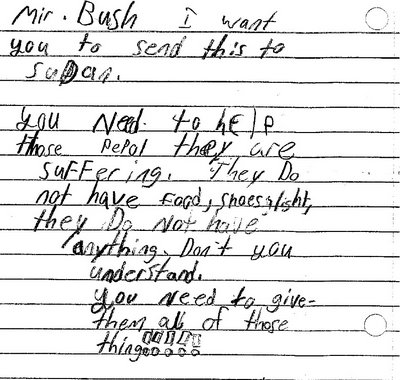 Mir. Bush I want
you to send this to
suDan.
you Need to hElp
those pepol they are
suffering. They Do
not have food, shoes, light,
they Do Not have
anything. Don't you
understand.
you need to give
them all of those
things!!!!!